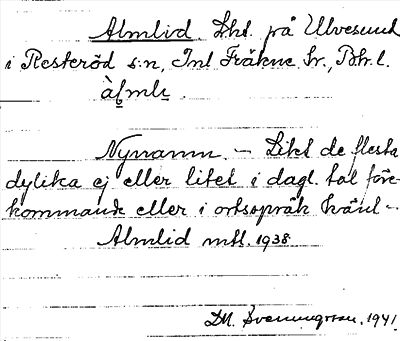 Almlid. Lht. på Ulvesund
i Resteröd s:n, Inl. Fräkne hr., Boh. l.
àlmli.
Nynamn. – Likt de flesta
dylika ej eller litet i dagl. tal före-
kommande eller i ortsspråk känt –.
Almlid mtl. 1938
D.M. Svenningsson. 1941.